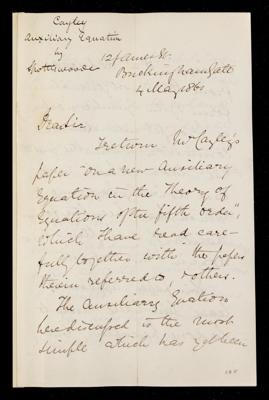 Cayley
Auxiliary Equation
by
Spottiswoode
12 James St.
Buckingham Gate
4 May 1861
Dear Sir
I return Mr Cayley's
paper "on a new Auxiliary
Equation in the Theory of
Equations of the fifth order",
which I have read care-
fully together with the papers
therein referred to & others.
The Auxiliary Equation
here discussed is the most
simple which has yet been